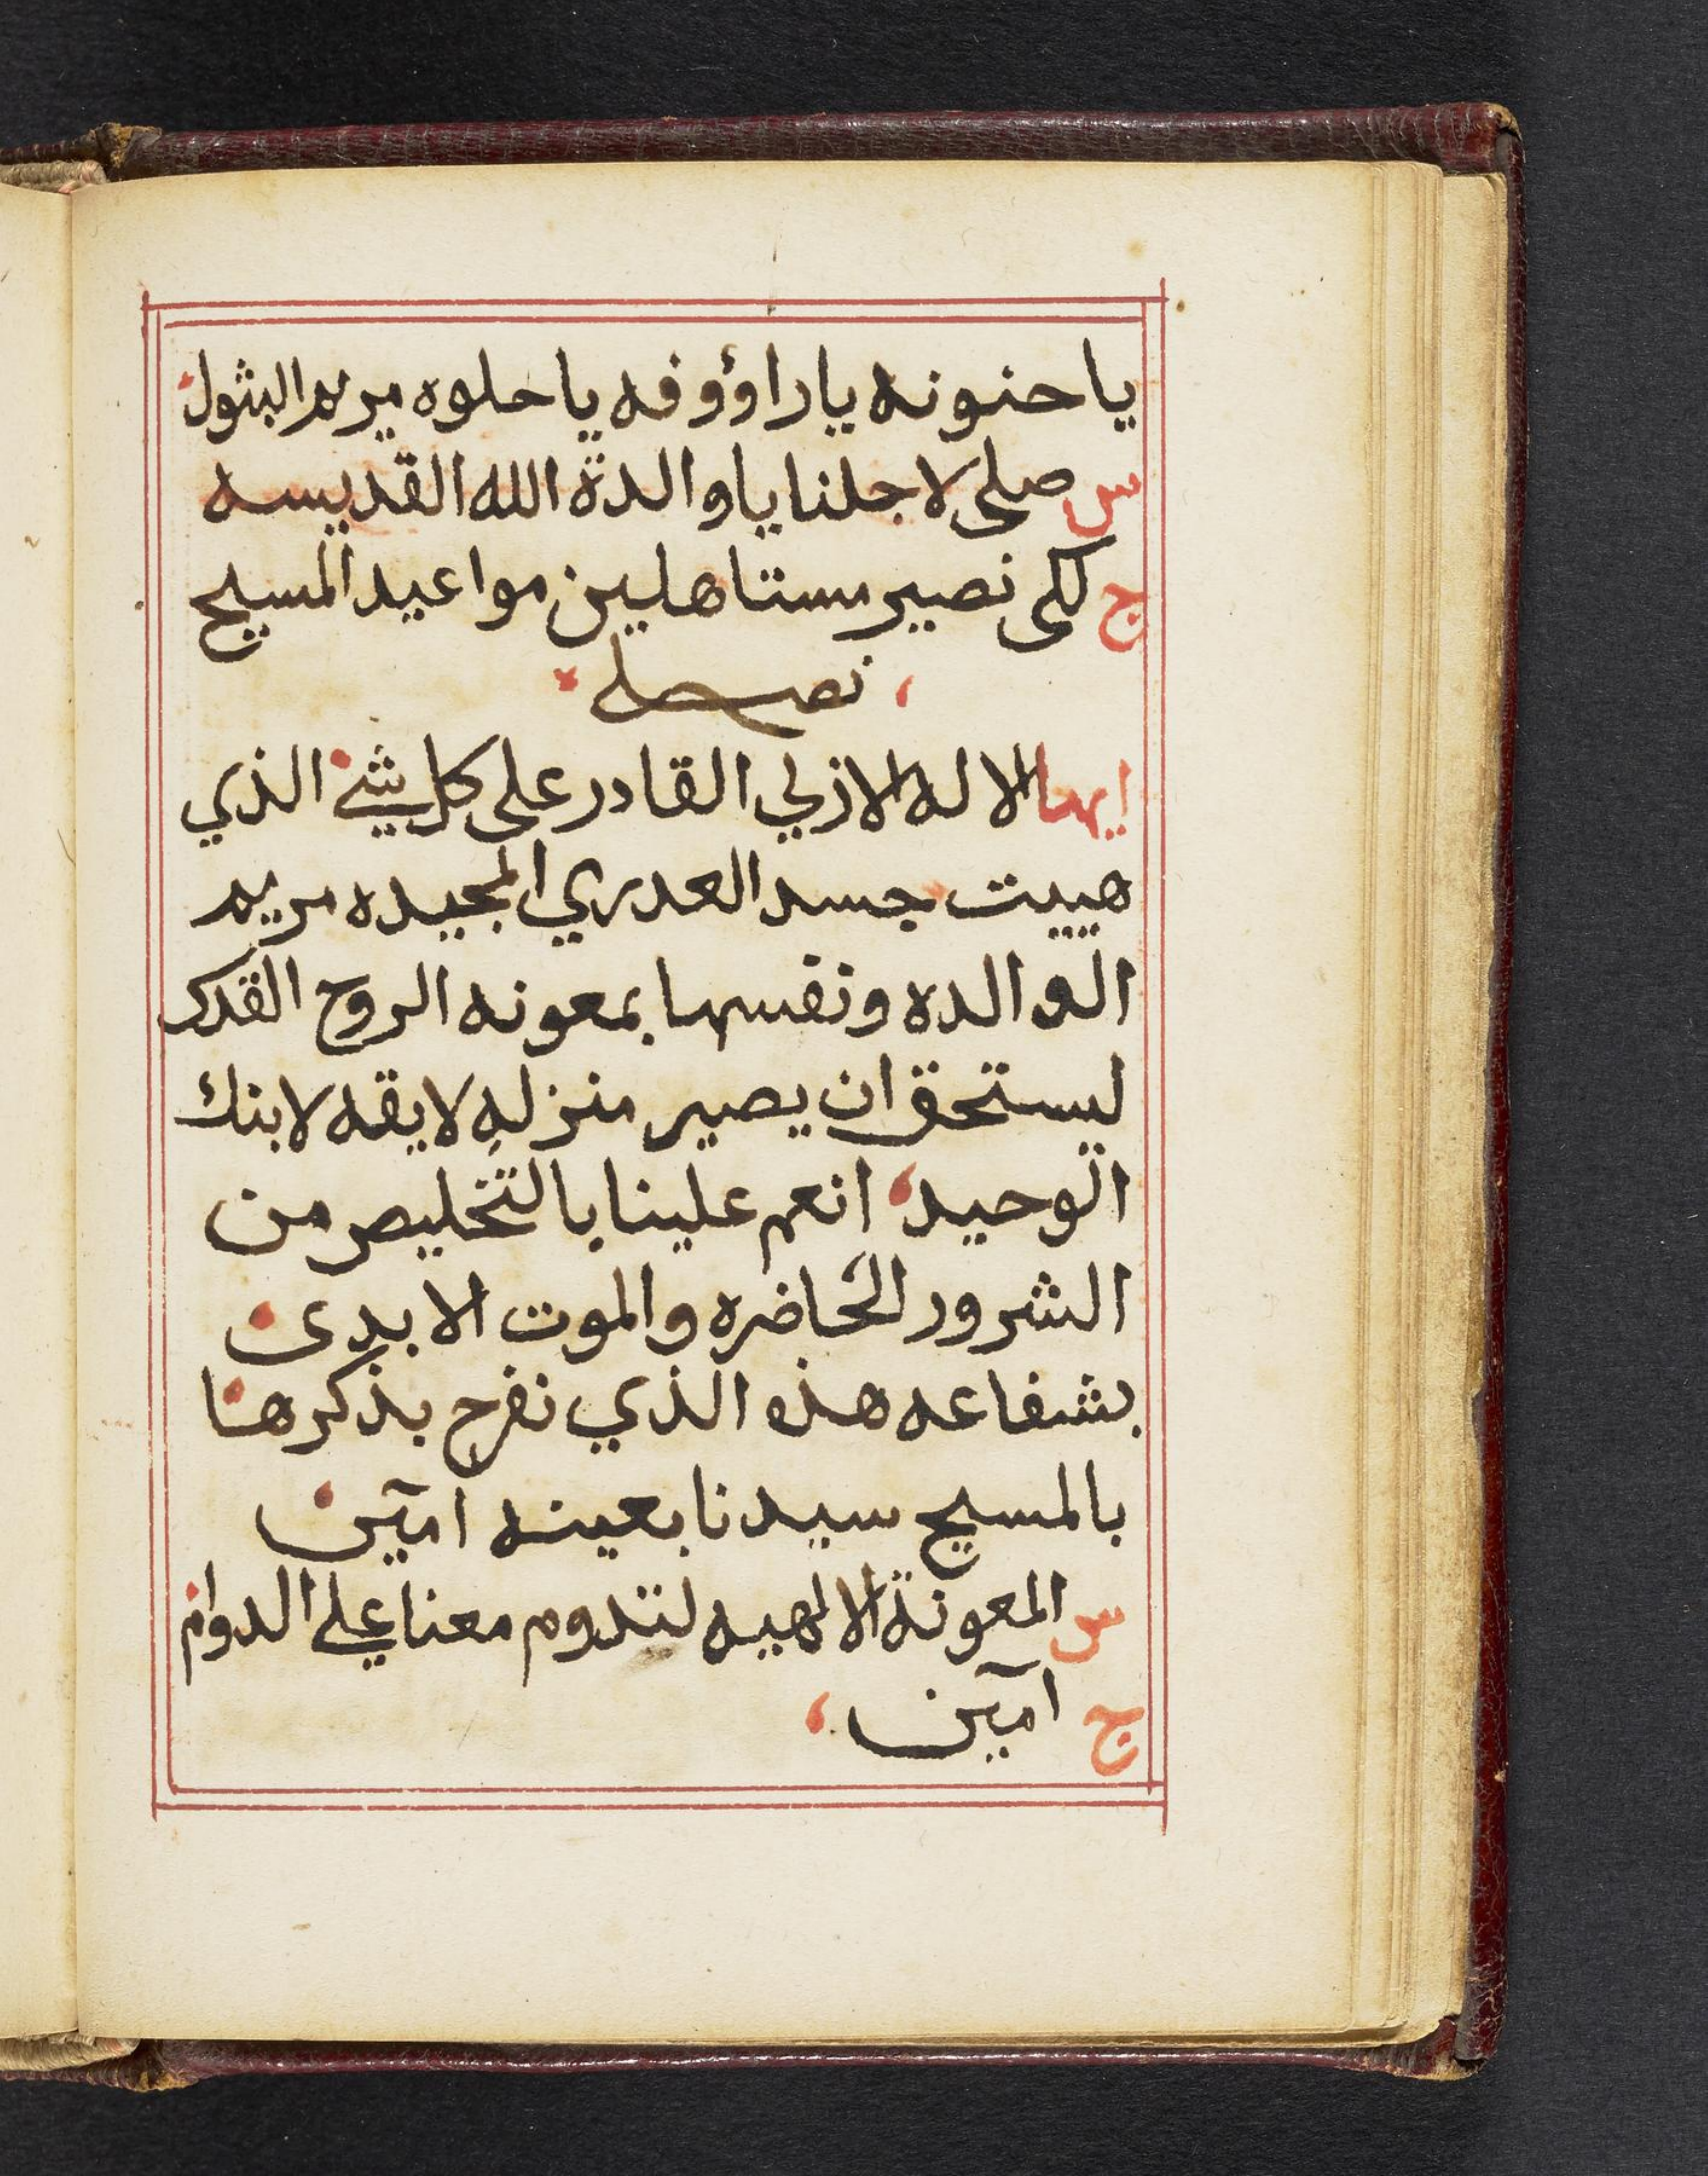 يا حنونه يا راؤوفه يا حلوه مريم البثول
س صلي لاجلنا يا والدة الله القديسه
ج لكي نصير مستاهلين مواعيد المسيح
، نصله
ايها الاله الازلي القادر على كل شئ الذي
هييت جسد العدري المجيده مريم
الوالده ونفسها بمعونه الروح القدس
ليستحق ان يصير منزله لايقه لابنك
الوحيد، انعم علينا بالتخليص من
الشرور الحاضره والموت الابدي
بشفاعه هذه الذي نفرح بذكرها
بالمسيح سيدنا بعينه امين
س المعونة الالهيه لتدوم معنا علي الدوام
ج امين ،